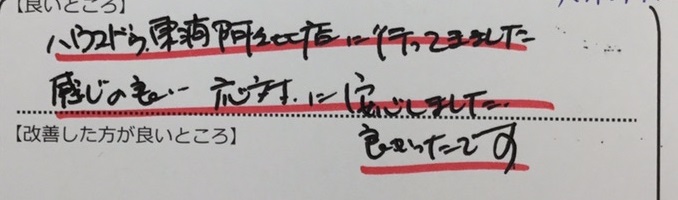 【良いところ】
ハウスドゥ東浦 店に行ってきました
感じの良い 応対に安心しました。
【改善した方が良いところ】
良かったです